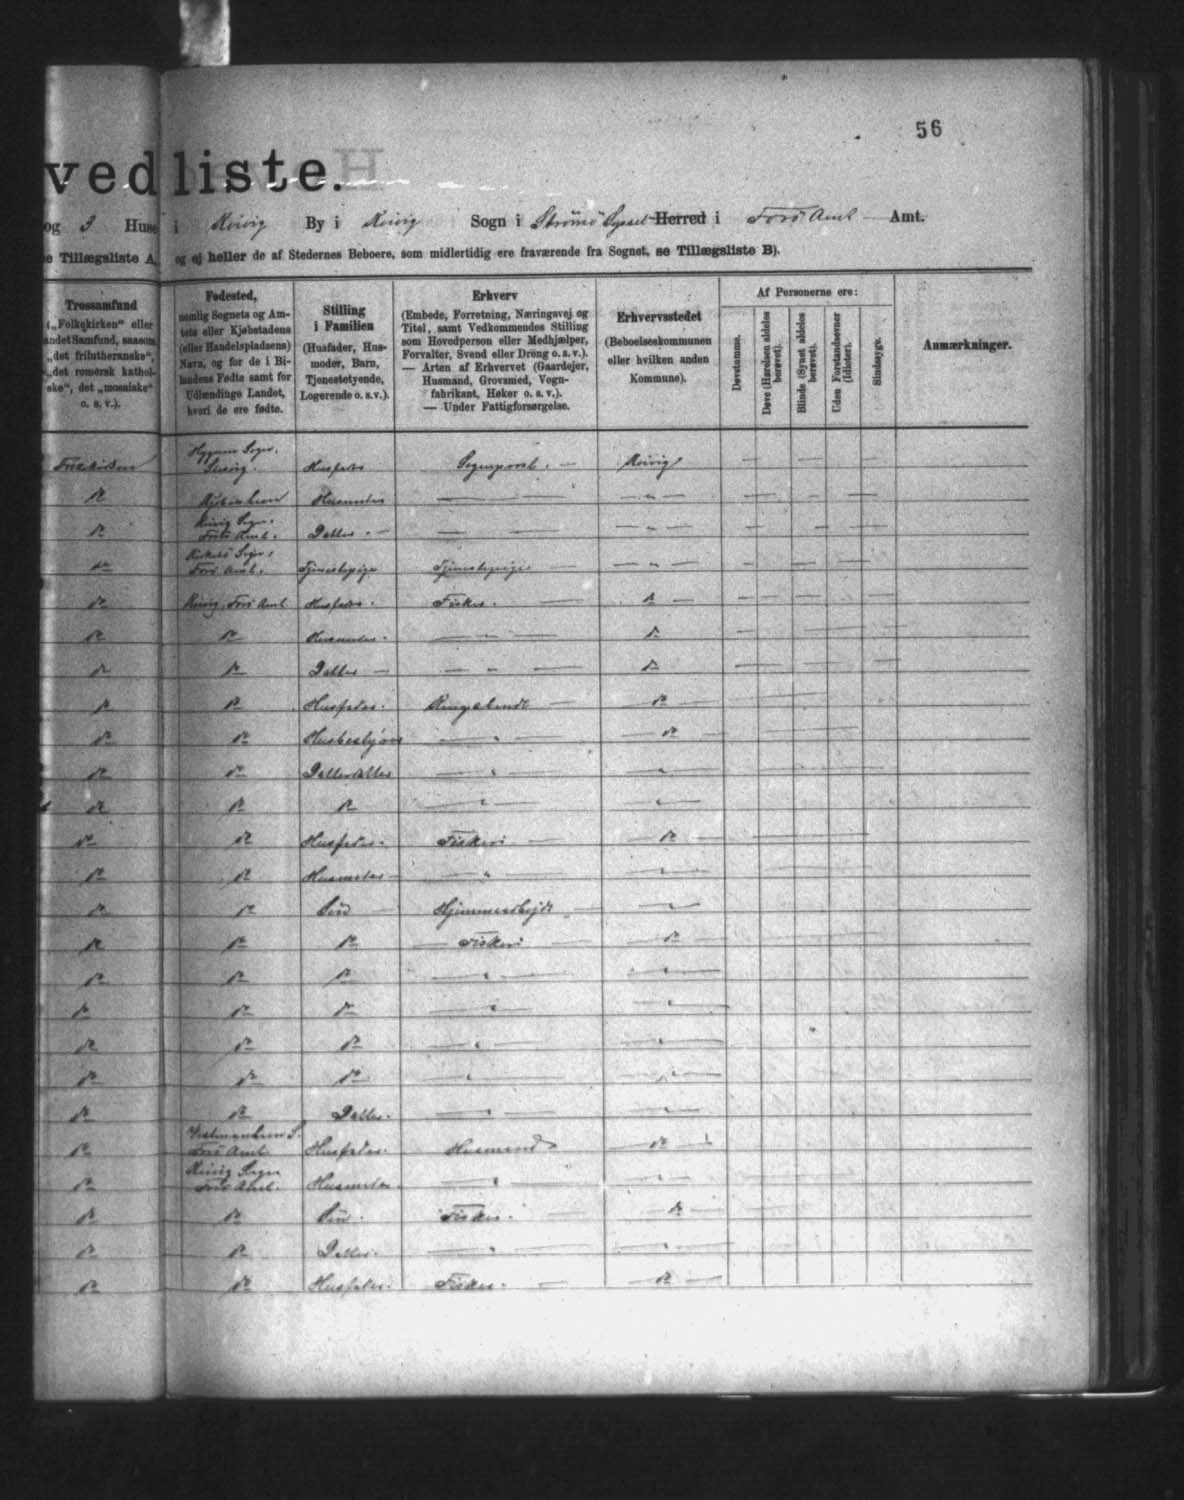 56
vedliste.
og 3 Huse i Kvivig By i Kvivig Sogn i Strömö Syssel Herred i Forö Amt Amt.
e Tillægsliste A, og ej heller de af Stedernes Beboere, som midlertidig ere fraværende fra Sognet, se Tillægsliste B).
Trossamfund
(„Folkekirken“ eller
andet Samfund, saasom
„det frilutheranske“,
„det romersk kathol-
ske“, det „mosaiske“
o. s. v.).
Fødested,
nemlig Sognets og Am-
tets eller Kjøbstadens
(eller Handelspladsens)
Navn, og for de i Bi-
landene Fødte samt for
Udlændinge Landet,
hvori de ere fødte.
Stilling
i Familien
(Husfader, Hus-
moder, Barn,
Tjenestetyende,
Logerende o. s. v.).
Erhverv
(Embede, Forretning, Næringsvej og
Titel, samt Vedkommendes Stilling
som Hovedperson eller Medhjælper,
Forvalter, Svend eller Dreng o. s. v.).
— Arten af Erhvervet (Gaardejer,
Husmand, Grovsmed, Vogn-
fabrikant, Høker o. s. v.).
— Under Fattigforsørgelse.
Erhvervsstedet
(Beboelseskommunen
eller hvilken anden
Kommune).
Af Personerne ere:
Døvstumme.
Døve (Hørelsen aldeles
berøvet).
Blinde (Synet aldeles
berøvet).
Uden Forstandsevner
(Idioter).
Sindssyge.
Anmærkninger.
Folkekirken Sogn. Husfader Sogneprest. — Kvivig
do Kjöbenhavn Husmoder
do Kvivig Sogn. Forö Amt. Datter. —
do Sogn, Forö Amt. Tjenestepige Tjenestepige
do Kvivig, Forö Amt Husfader. Fisker. — do
do do Husmoder. do
do do Datter — do
do do Husfader. — do
do do Husbestyrer do
do do Datterdatter
do do do
do do Husfader. Fiskeri — do
do do Husmoder —
do do Sön — Hjemmearbejde
do do do Fiskeri — do
do do do
do do do
do do do
do do do
do do Datter.
do Vestmanhavn S. Forö Amt. Husfader. Husmand do
do Kvivig Sogn Forö Amt. Husmoder.
do do Sön. Fisker. do
do do Datter.
do do Husfader. Fisker. — do